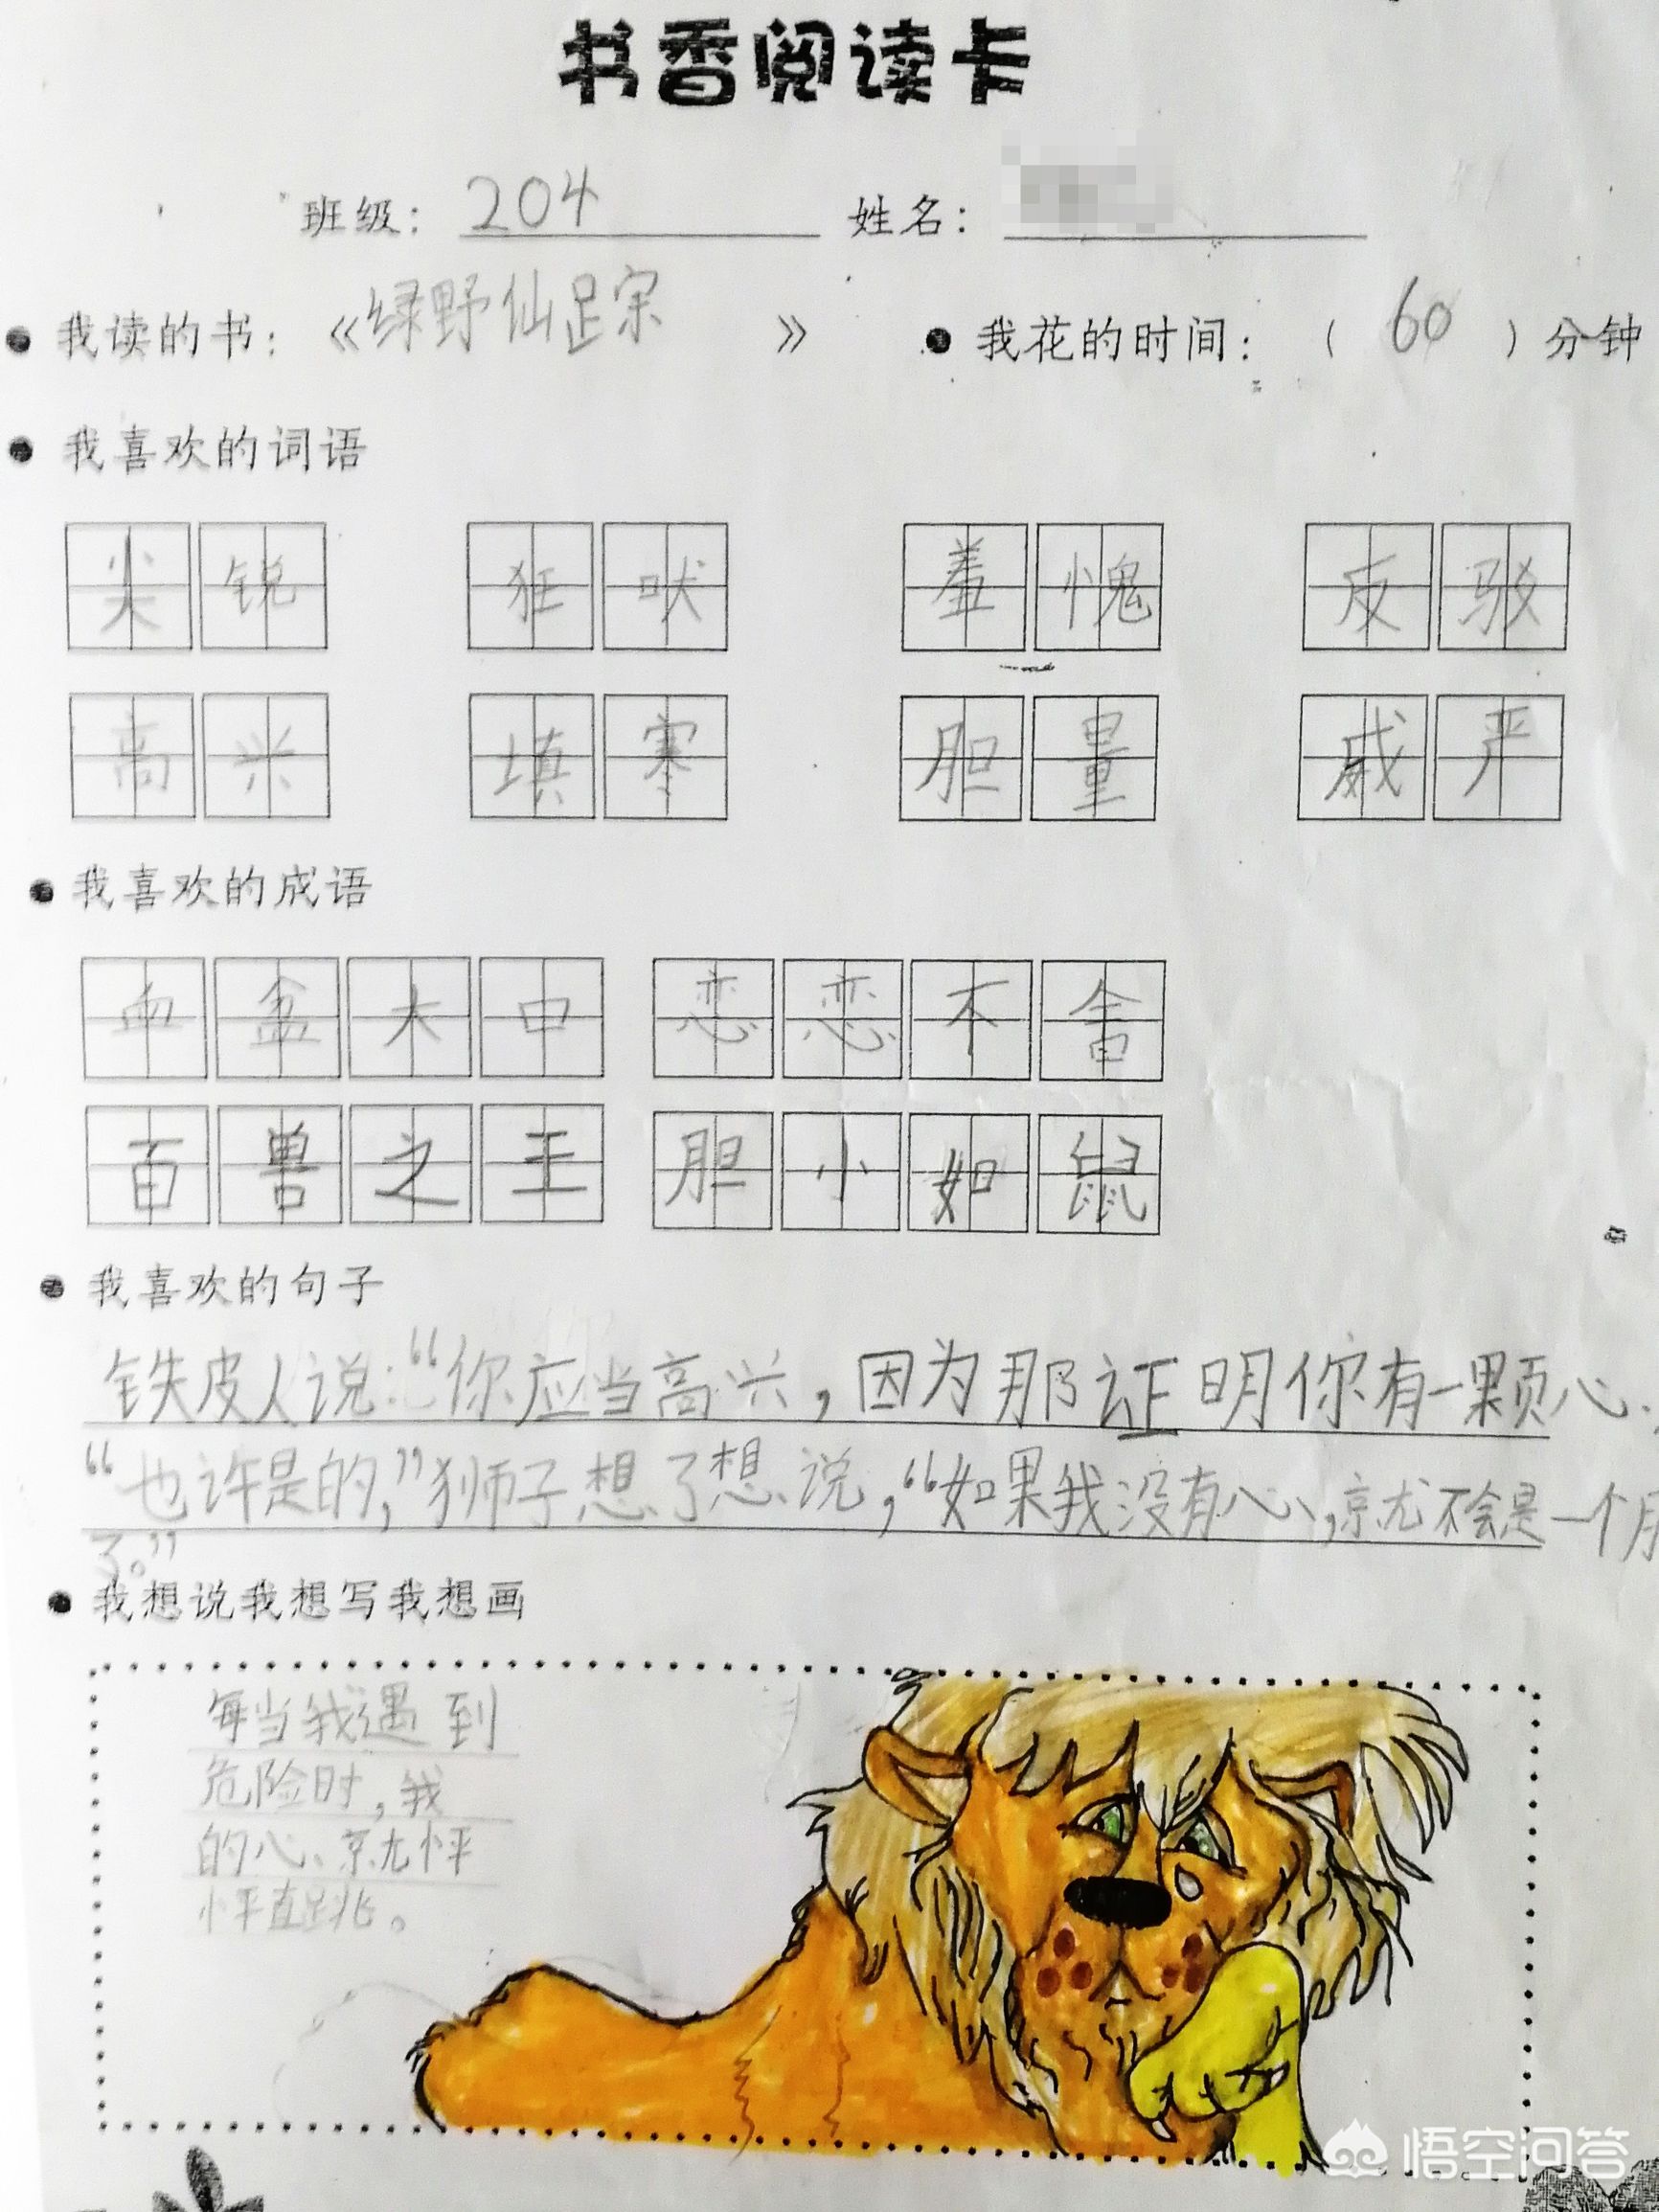 书香阅读卡
班级： 204 姓名：
我读的书：《绿野仙踪》 我花的时间：（ 60 ）分钟
我喜欢的词语
尖锐 狂吠 羞愧 反驳
高兴 填塞 胆量 威严
我喜欢的成语
血盆大口 恋恋不舍
百兽之王 胆小如鼠
我喜欢的句子
铁皮人说：“你应当高兴，因为那证明你有一颗心.
“也许是的，”狮子想了想说，“如果我没有心，就不会是一个
了。”
我想说我想写我想画
每当我遇到
危险时，我
的心就怦
怦直跳。
悟空问答